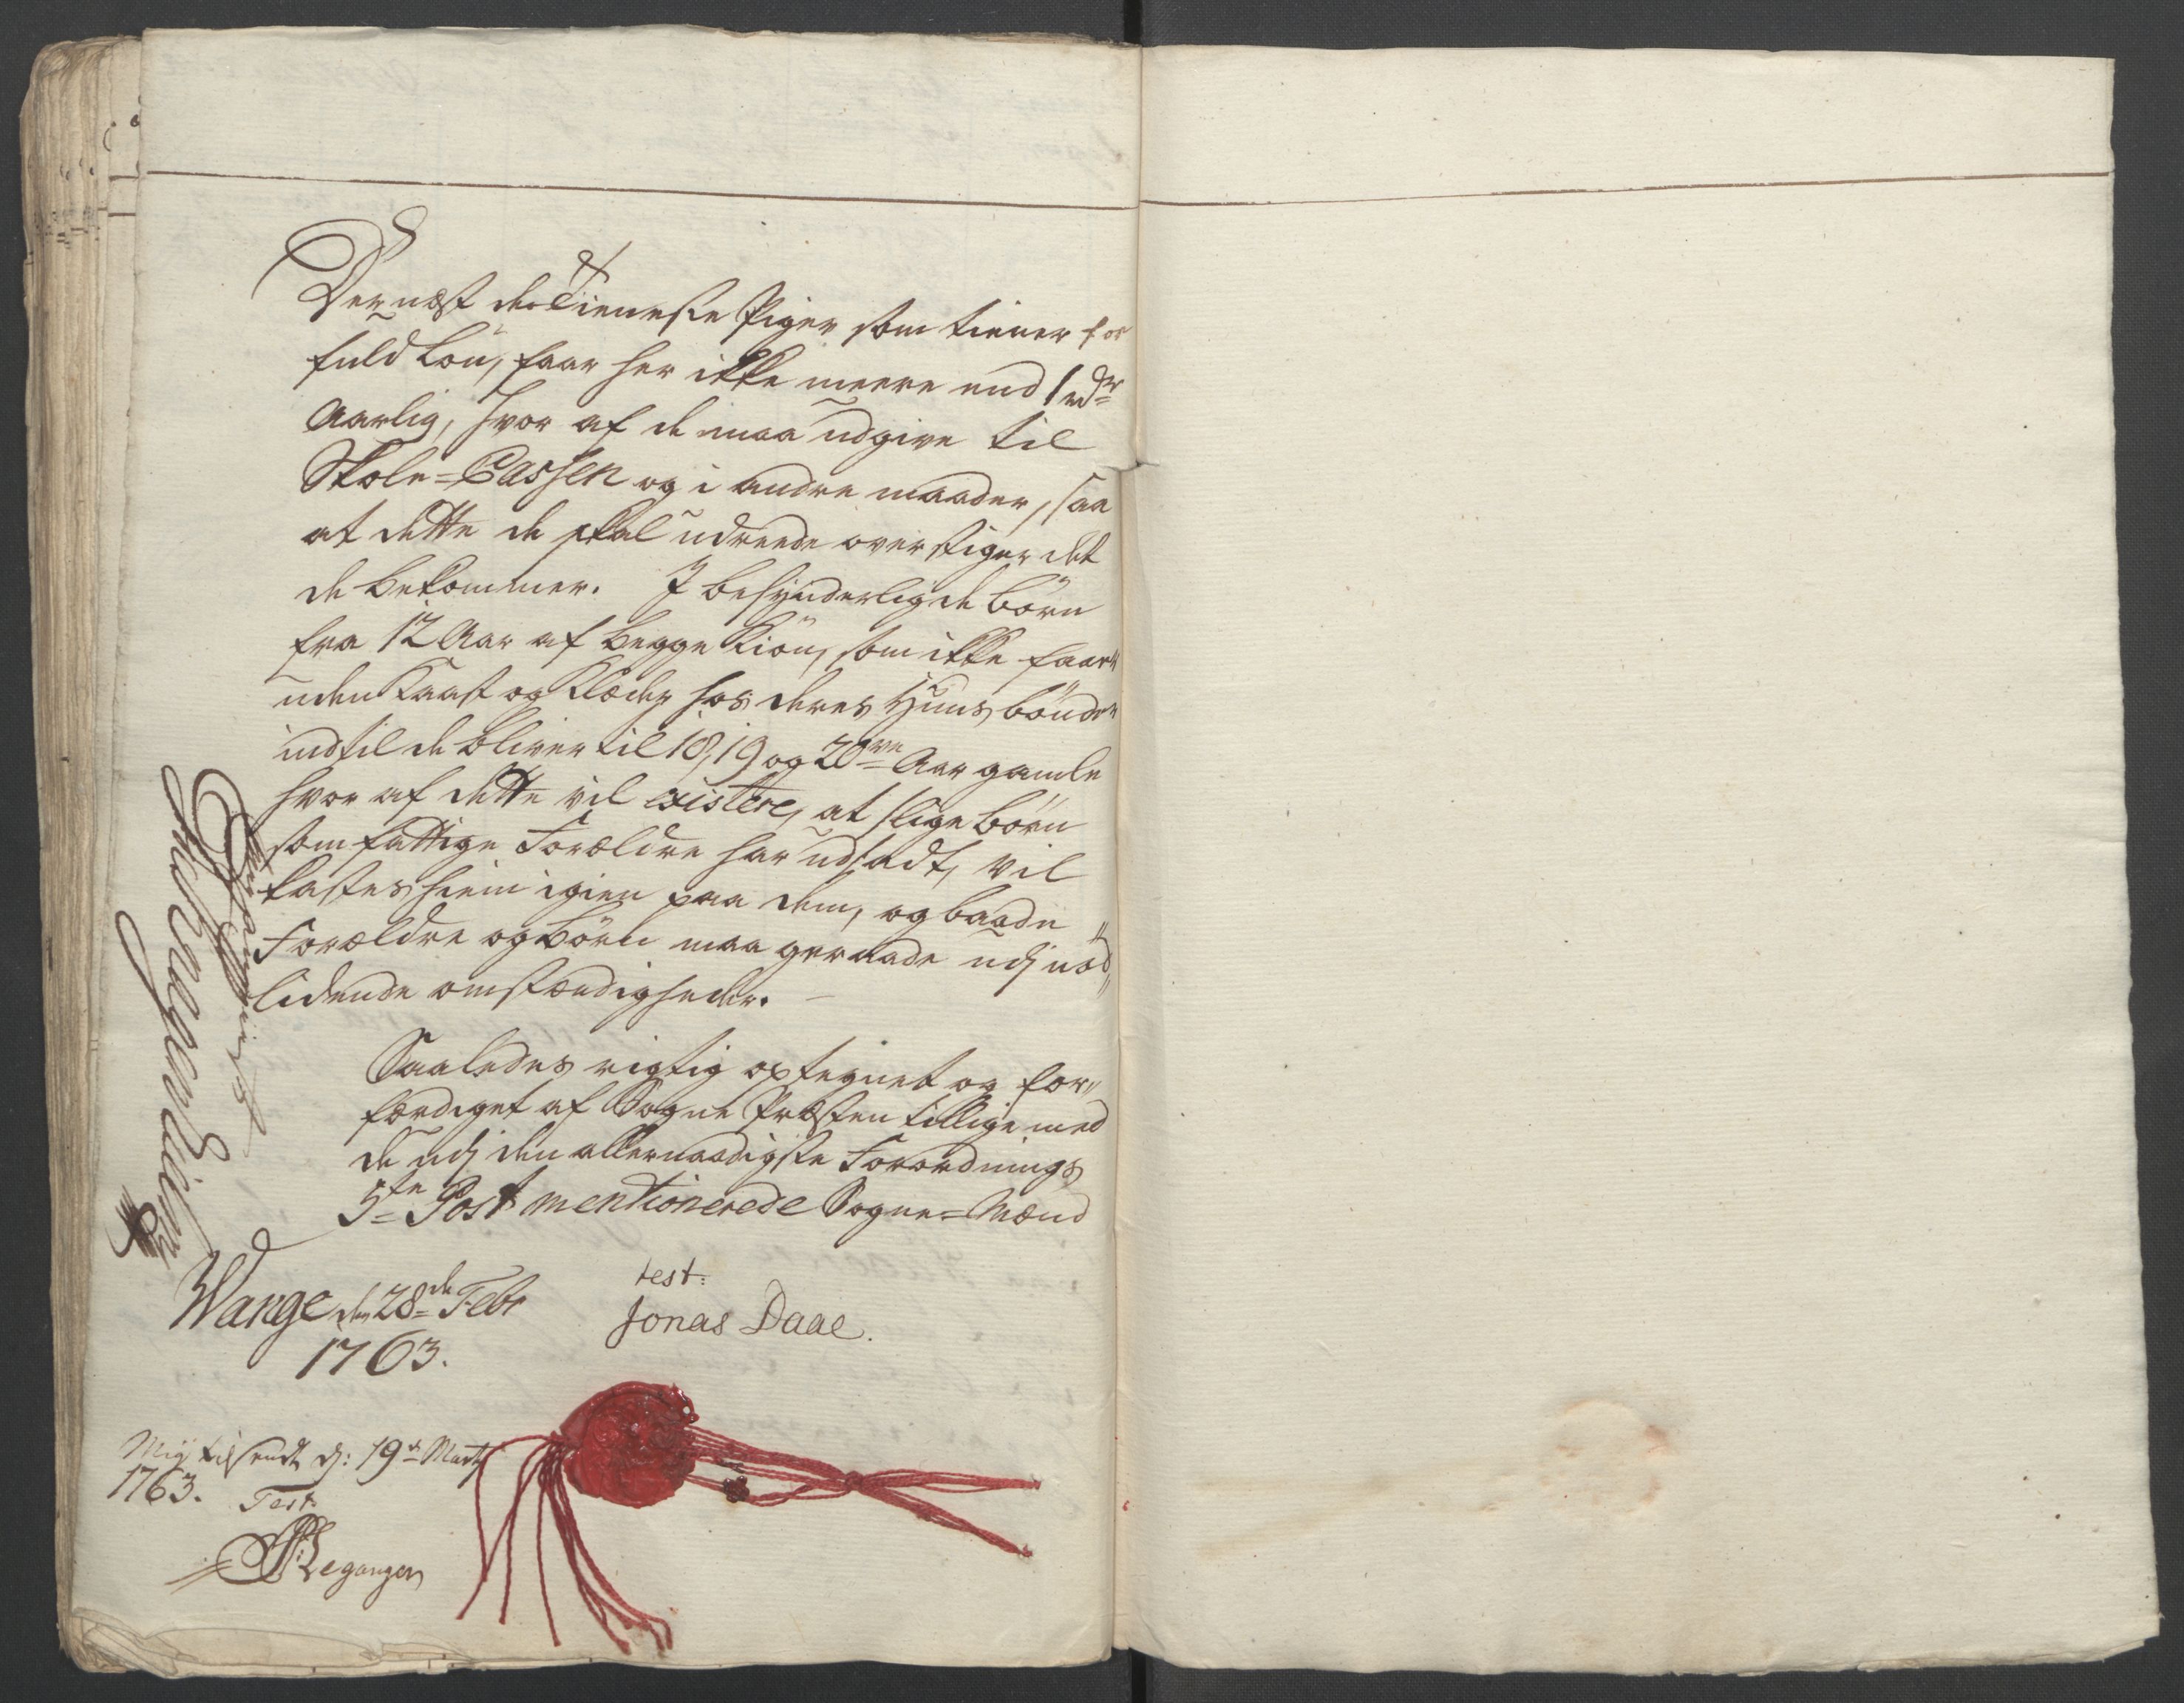 Dernæst de Tieneste Piger som tiener for
fuld Løn, faar her ikke meere end 1 rdr
Aarlig, hvor af de maa udgive til
Skole=Cassen og i andre maader, saa
at dette de skal udreede overstiger det
de bekommer. I besynderlig de børn
fra 12 Aar af begge Kiøn, som ikke faar
uden Kaast og Klæder hos deres Huusbønder
indtil de bliver til 18, 19 og 20ve Aar gamle
hvor af dette vil existere, at slige børn
som fattige Forældre har udsadt, vil
kastes hiem igien paa dem, og baade
Forældre og børn maa geraade udj nød„
lidende omstændigheder. —
Saaledes rigtig optegnet og for„
færdiget af Sogne Præsten tillige med
de udj den allernaadigste Forordnings
5te Post mentionerede Sogne=Mænd
Wange den 28de Febr
1763.
test:
Jonas Daae.
Mig tilsendt d: 19de Marty
1763. Test.